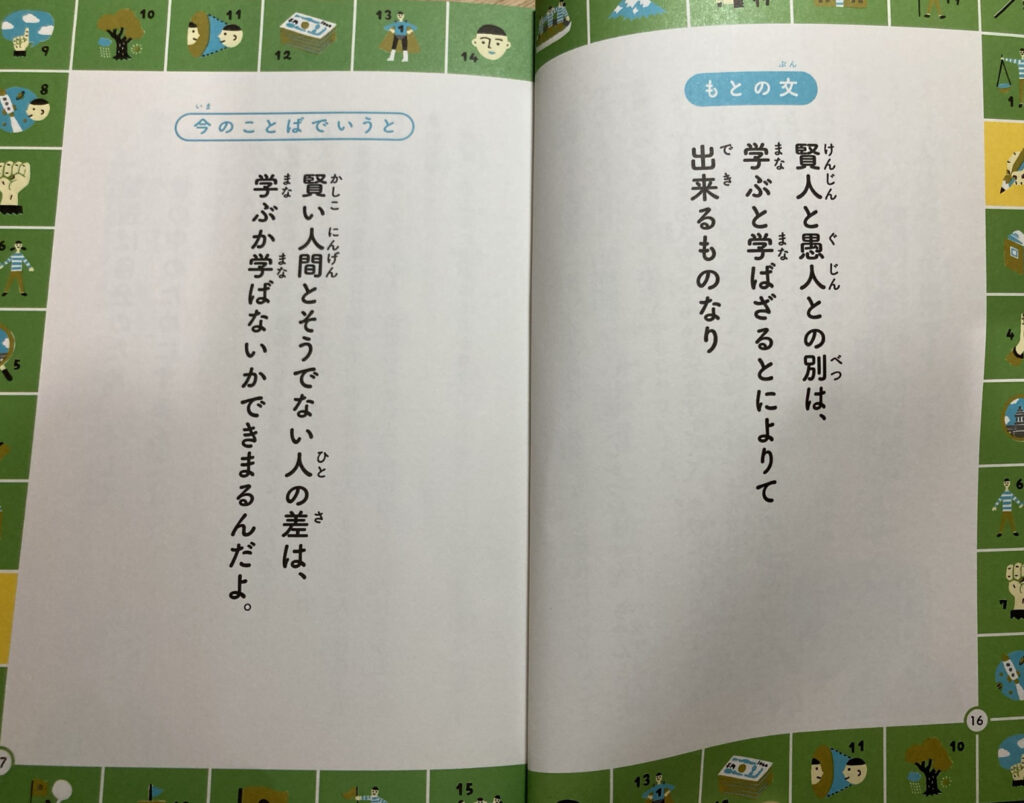 もとの文
賢人と愚人との別は、
学ぶと学ばざるとによりて
出来るものなり
16
今のことばでいうと
賢い人間とそうでない人の差は、
学ぶか学ばないかできまるんだよ。